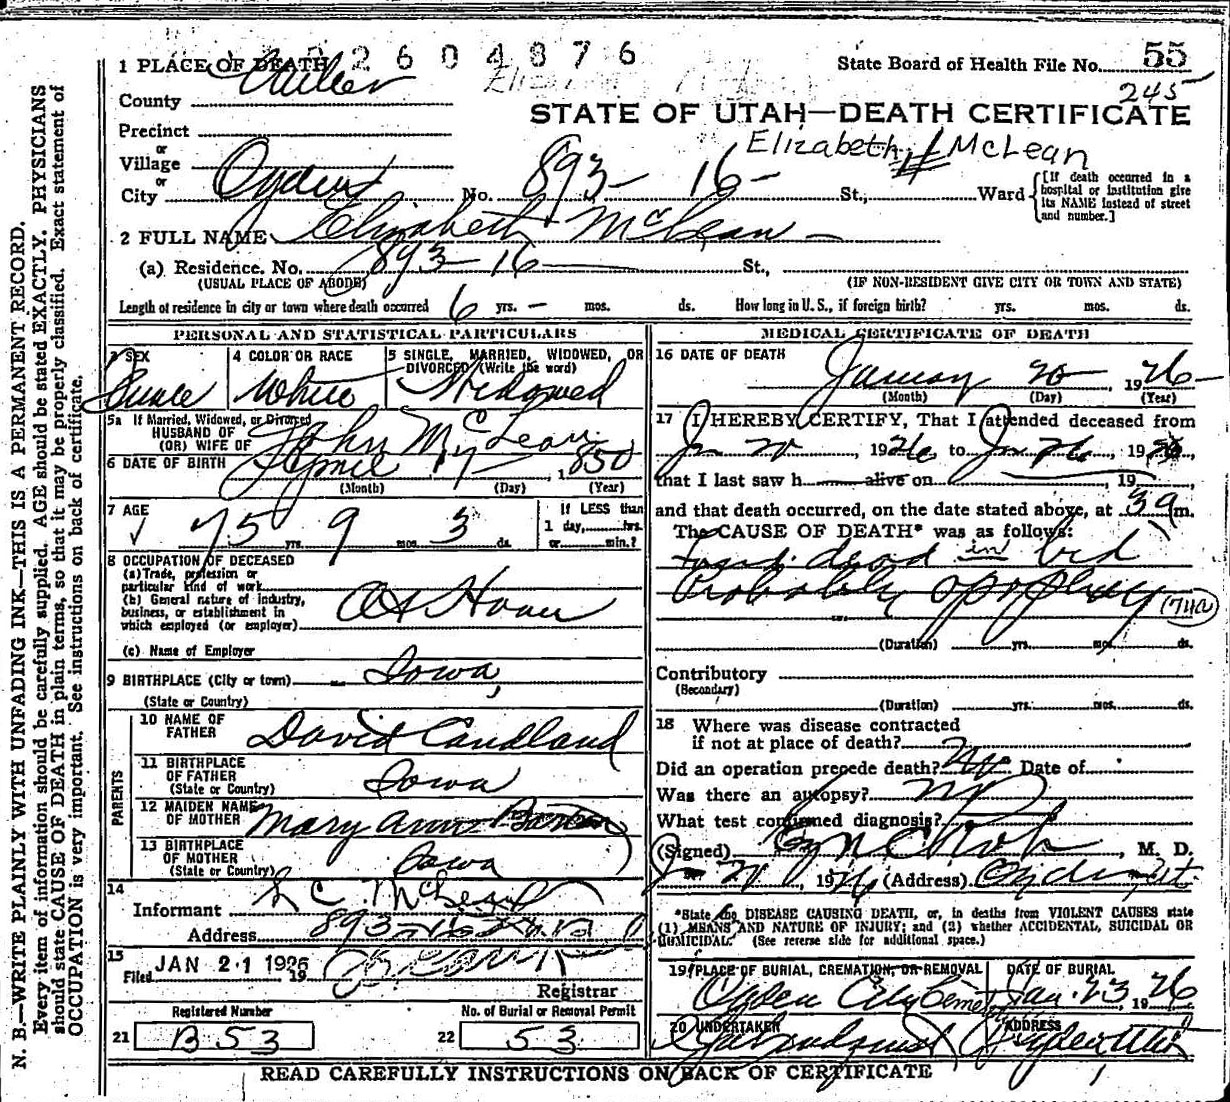 2604876
1 PLACE OF DEATH
State Board of Health File No. 55
245
County
STATE OF UTAH—DEATH CERTIFICATE
Precinct
or
Village
Elizabeth McLean
or
City Ogden No. 893 - 16 - St., Ward
[If death occurred in a hospital or institution give its NAME instead of street and number.]
2 FULL NAME Elizabeth McLean
(a) Residence. No. 893 - 16 St.,
(USUAL PLACE OF ABODE) (IF NON-RESIDENT GIVE CITY OR TOWN AND STATE)
Length of residence in city or town where death occurred 6 yrs. - mos. ds. How long in U. S., if foreign birth? yrs. mos. ds.
PERSONAL AND STATISTICAL PARTICULARS
3 SEX 4 COLOR OR RACE 5 SINGLE, MARRIED, WIDOWED, OR DIVORCED (Write the word)
White Widowed
5a If Married, Widowed, or Divorced
HUSBAND OF
(OR) WIFE OF John McLean
6 DATE OF BIRTH April 17 1850
(Month) (Day) (Year)
7 AGE 75 yrs. 9 mos. 3 ds.
If LESS than
1 day, hrs.
or min.?
8 OCCUPATION OF DECEASED
(a) Trade, profession or
particular kind of work
(b) General nature of industry,
business, or establishment in
which employed (or employer) At Home
(c) Name of Employer
9 BIRTHPLACE (City or town) Iowa
(State or Country)
PARENTS
10 NAME OF
FATHER David Candland
11 BIRTHPLACE
OF FATHER
(State or Country) Iowa
12 MAIDEN NAME
OF MOTHER Mary Ann Barton
13 BIRTHPLACE
OF MOTHER
(State or Country) Iowa
14
Informant L C McLean
Address 893-16
15
Filed JAN 21 1926 19
Registrar
Registered Number No. of Burial or Removal Permit
21 B 53 22 53
MEDICAL CERTIFICATE OF DEATH
16 DATE OF DEATH January 20, 1926
(Month) (Day) (Year)
17 I HEREBY CERTIFY, That I attended deceased from
Jan 20, 1926, to Jan 26, 1926,
that I last saw h alive on , 19
and that death occurred, on the date stated above, at 3 a m.
The CAUSE OF DEATH* was as follows:
found dead in bed
Probably apoplexy (74a)
(Duration) yrs. mos. ds.
Contributory
(Secondary)
(Duration) yrs. mos. ds.
18 Where was disease contracted
if not at place of death?
Did an operation precede death? No Date of
Was there an autopsy? no
What test confirmed diagnosis?
(Signed) , M. D.
Jan 20, 1926 (Address) Ogden, Ut.
*State the DISEASE CAUSING DEATH, or, in deaths from VIOLENT CAUSES state
(1) MEANS AND NATURE OF INJURY; and (2) whether ACCIDENTAL, SUICIDAL OR
HOMICIDAL. (See reverse side for additional space.)
19 PLACE OF BURIAL, CREMATION, OR REMOVAL DATE OF BURIAL
Ogden City Cemetery Jan. 23, 1926
20 UNDERTAKER ADDRESS
Ogden Utah
READ CAREFULLY INSTRUCTIONS ON BACK OF CERTIFICATE
N. B.—WRITE PLAINLY WITH UNFADING INK—THIS IS A PERMANENT RECORD.
Every item of information should be carefully supplied. AGE should be stated EXACTLY. PHYSICIANS
should state CAUSE OF DEATH in plain terms, so that it may be properly classified. Exact statement of
OCCUPATION is very important. See instructions on back of certificate.